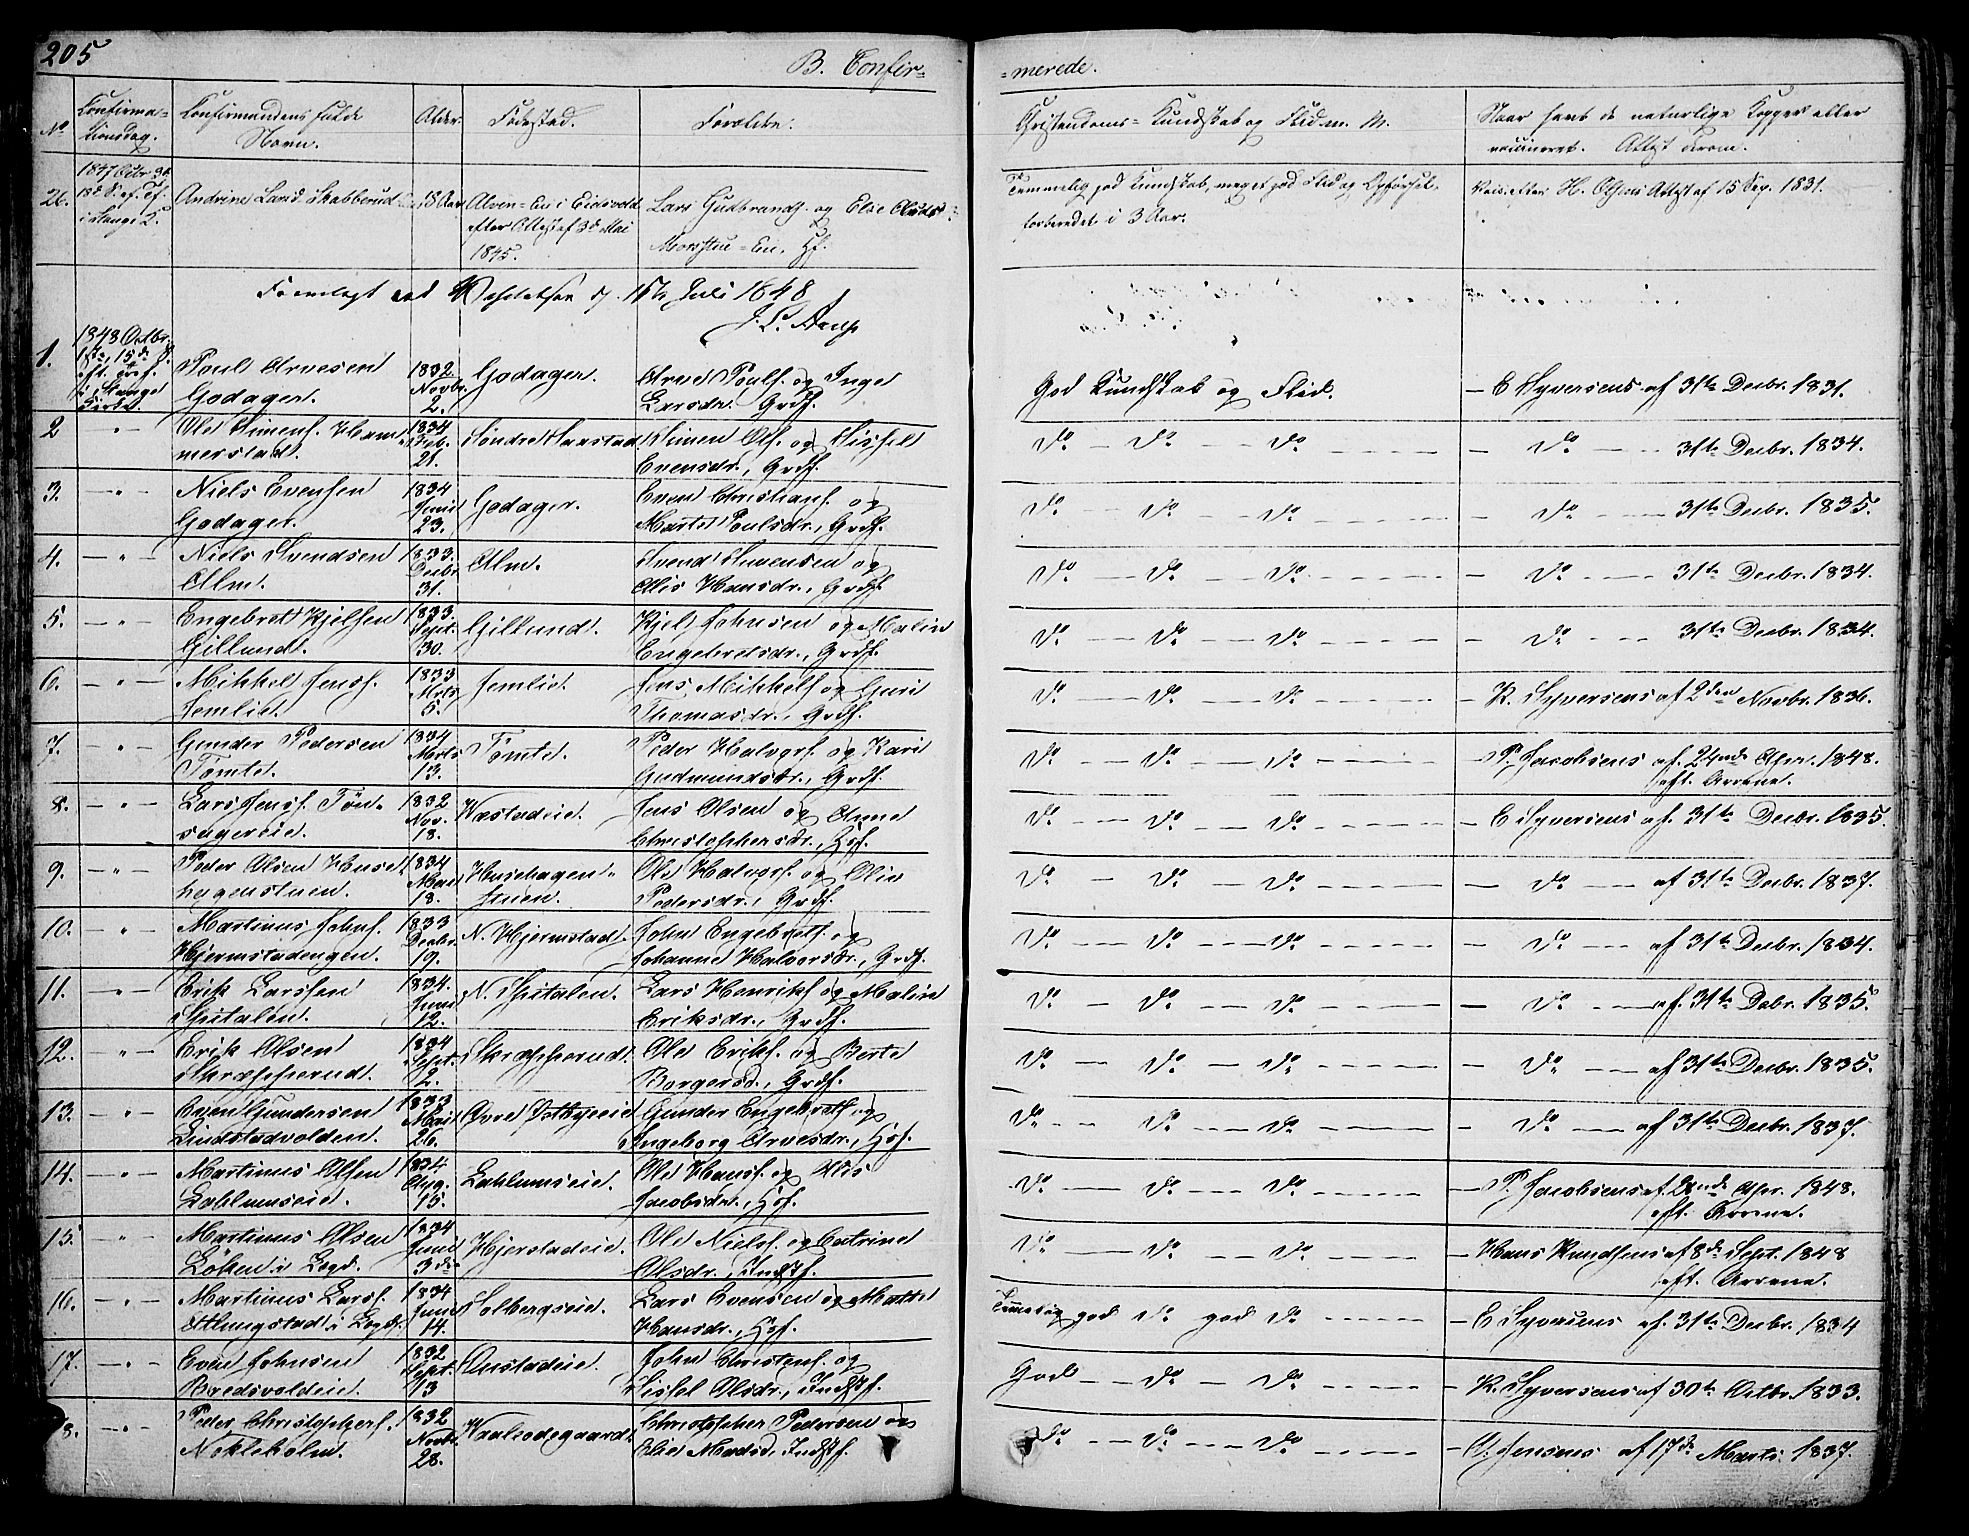 205
B. Confir=
=merede.
No.
Confirma=
tionsdag.
Confirmandens fulde
Navn.
Alder.
Fødested.
Forældre.
Christendoms=Kundskab og Flid m. M.
Naar havt de naturlige Kopper eller
vaccineret. Attest derom.
26.
1847 Octr 3d
18d S. ef. Tf.
i Stange K.
Andrine Lard Skabberud
18 Aar
Alven=En i Eidsvold
efter Attest af 3d Mai
1845.
Lars Gudbrands. og Else
Morstue=En, Hf.
Temmelig god Kundskab, meget god Flid og Opførsel,
forberedet i 3 Aar.
Vac. efter H. Attest af 15 Sep. 1831.
Fremlagt ved Visitatsen d. 15de Juli 1848
Arup
1.
1848 Octbr.
1ste, 15de S.
eft. Tref.
i Stange
Kirke.
Poul Arnesen
Godager.
1832
Novbr.
2.
Godager.
Arne Pouls. og Inge
Larsdr. Grdf.
God Kundskab og Flid.
— E Syversens af 31te Decbr. 1831.
2 — " —
Ole Simens. Ham=
merstad.
1834
Feb.
21.
Søndre Saastad.
Simen Ols. og Sissel
Evensdr., Grdf.
Do — Do — Do — Do — 31te Decbr. 1834.
3. — " —
Niels Evensen
Godager.
1834
Juni
23.
Godager.
Even Christians. og
Marte Poulsdr., Grdf.
Do — Do — Do — Do — 31te Decbr. 1835.
4. — " —
Niels Svendsen
Alm.
1833.
Decbr
31.
Alm.
Svend Simensen og
Alis Hansdr., Grdf.
Do — Do — Do — Do — 31te Decbr. 1834.
5. — " —
Engebret Kjelsen
Gillund.
1833
Sept.
30.
Gillund.
Kjel Johnsen og Malin
Engebretsdr., Grdf.
Do — Do — Do — Do — 31te Decbr. 1834.
6. — " —
Mikkel Jenss.
Jemlie.
1833
Mrts
5.
Jemlie.
Jens Mikkels og Guri
Thomasdr., Grdf.
Do — Do — Do — K. Syversens af 2den Novbr. 1836.
7. — " —
Gunder Pedersen
Tomte.
1834
Mrts
13.
Tomte.
Peder Halvors. og Kari
Gudmundsdr., Grdf.
Do — Do — Do — P. Jacobsens af 24nde Apr. 1848.
eft. Arrene.
8. — " —
Lars Jenss. Tøn=
sagereie.
1832
Nov.
18.
Wæstadeie.
Jens Olsen og Anne
Christophersdr., Hsf.
Do — Do — Do — E Syversens af. 31te Decbr. 1835.
9. — " —
Peder Olsen Huse=
hagenstuen.
1834
Mai
18.
Husehagen=
stuen.
Ole Halvors. og Olia
Pedersdr., Grdf.
Do — Do — Do — Do — af 31te Decbr. 1837.
10. — " —
Martinus Johns.
Hjermstadengen.
1833
Decbr.
19.
N. Hjermstad.
John Engebrets. og
Johanne Halvorsdr., Grdf.
Do — Do — Do — Do — af 31te Decbr. 1834.
11. — " —
Erik Larssen
Spitalen.
1834.
Juni
12.
N. Spitalen.
Lars Henriks og Malin
Eriksdr., Grdf.
Do — Do — Do — Do — af. 31te Debr. 1835.
12. — " —
Erik Olsen
Skræpperud.
1834
Sept.
2.
Skræpperud.
Ole Eriks. og Berte
Borgersd., Grdf.
Do — Do — Do — Do — af 31te Decbr. 1835.
13. — " —
Even Gundersen
Lindstadvolden.
1833
Mai
26.
Øvre Østbyeeie
Gunder Engebrets og
Ingeborg Arnesdr., Hsf.
Do — Do — Do — Do — af 31te Decbr. 1837.
14. — " —
Martinus Olsen
Lahlumseie.
1834
Aug.
15.
Lahlumseie.
Ole Hanss. og Alis
Jacobsdr., Hsf.
Do — Do — Do — P. Jacobsens af. 2 nde Apr. 1848.
eft. Arrene.
15. — " —
Martinus Olsen
Løken i Logd.
1834
Juni
3de
Hjerstadeie.
Ole Niels. og Catrine
Olsdr., Indstf.
Do — Do — Do — Hans Knudsens af 8de Sept. 1848
eft. Arrene.
16. — " —
Martinus Larss.
Atlungstad i Logd.
1834
Juni
14.
Solbergseie.
Lars Evensen og Matte
Hansdr., Hsf.
Temmelig god Do god Do — E Syversens af. 31te Decbr. 1834
17. — " —
Even Johnsen
Bredsvoldeie.
1832
Sept.
13
Anstadeie.
John Christens. og
Sissel Olsdr., Indstf.
God — Do — Do — K. Syversens af 30te Octbr. 1833.
18. — " —
Peder Christophers.
Nokleholm.
1832
Novbr.
28.
Waaleodegaard.
Christopher Pedersen og
Olie Madsd. Indstf.
Do — Do — Do — O. Jensens af 17de Marts 1837.